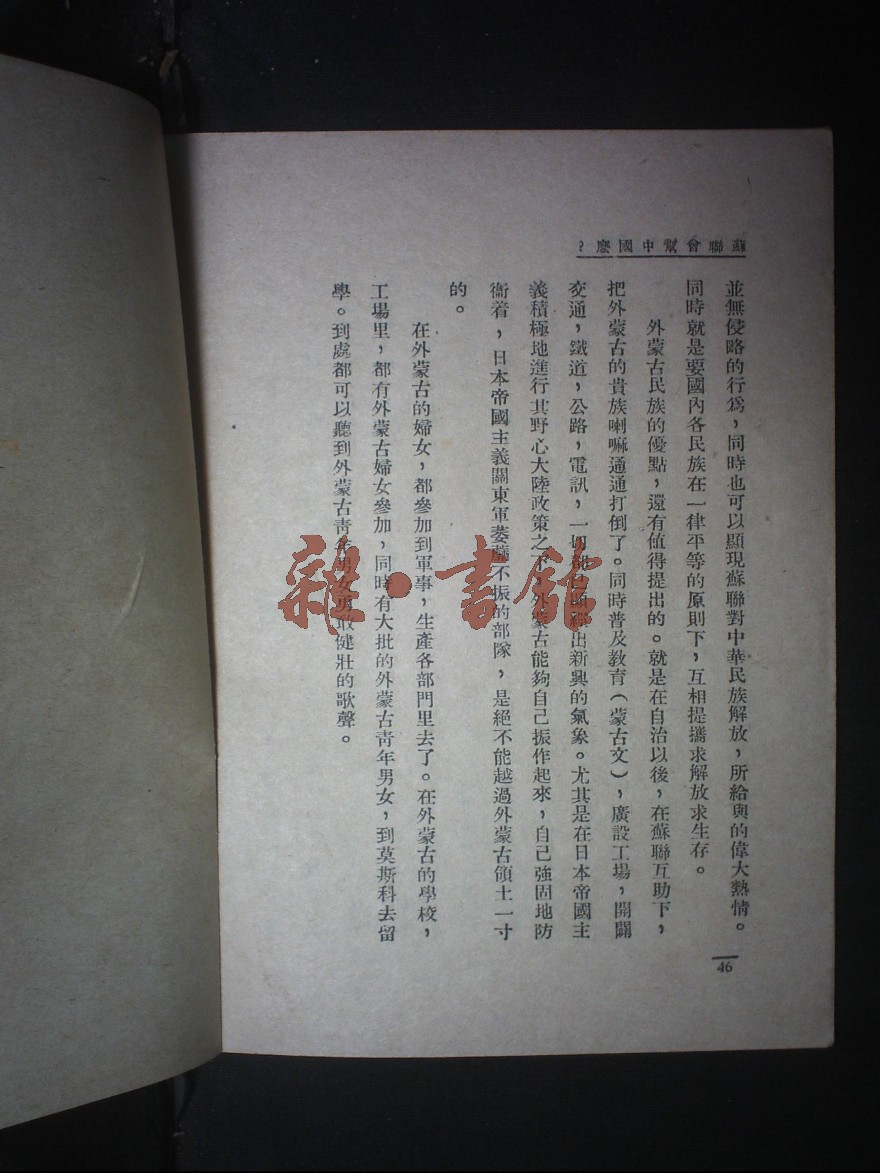 蘇聯會幫中國麼？
並無侵略的行爲，同時也可以顯現蘇聯對中華民族解放，所給與的偉大熱情。
同時就是要國內各民族在一律平等的原則下，互相提攜求解放求生存。
外蒙古民族的優點，還有值得提出的。就是在自治以後，在蘇聯互助下，
把外蒙古的貴族喇嘛通通打倒了。同時普及教育（蒙古文），廣設工場，開闢
交通，鐵道，公路，電訊，一切都已顯露出新興的氣象。尤其是在日本帝國主
義積極地進行其野心大陸政策之下，外蒙古能夠自己振作起來，自己強固地防
衞着，日本帝國主義關東軍萎靡不振的部隊，是絕不能越過外蒙古領土一寸
的。
在外蒙古的婦女，都參加到軍事，生產各部門里去了。在外蒙古的學校，
工場里，都有外蒙古婦女參加，同時有大批的外蒙古靑年男女，到莫斯科去留
學。到處都可以聽到外蒙古靑年男女勇敢健壯的歌聲。
46
雜·書館